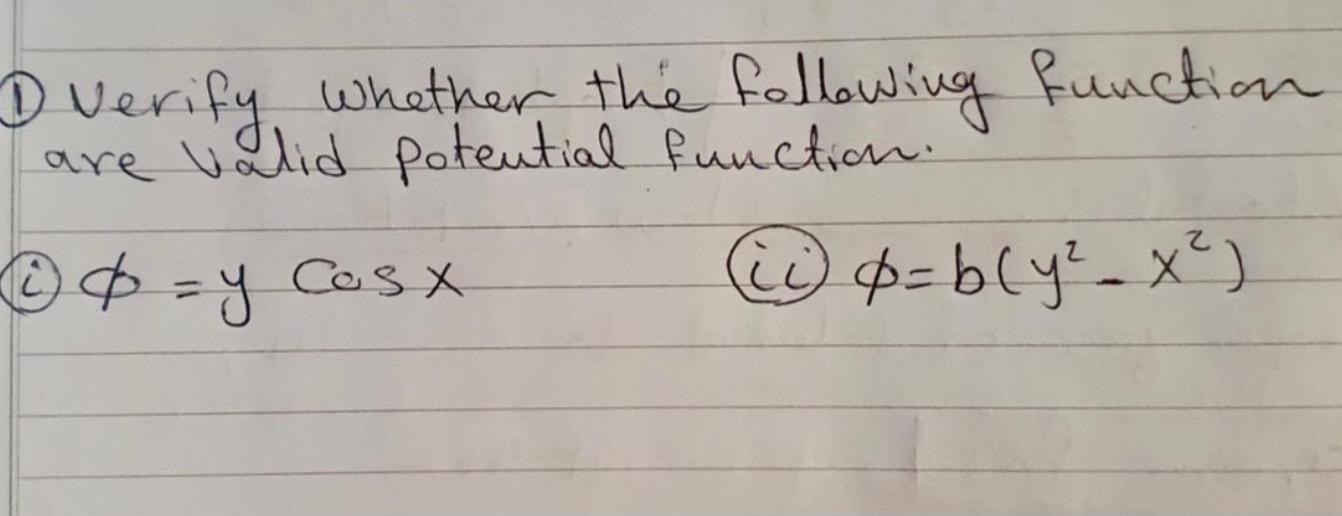 ① Verify whether the following function
are valid potential function.
ⓘ φ = y Cos x (ii) φ = b(y² - x²)